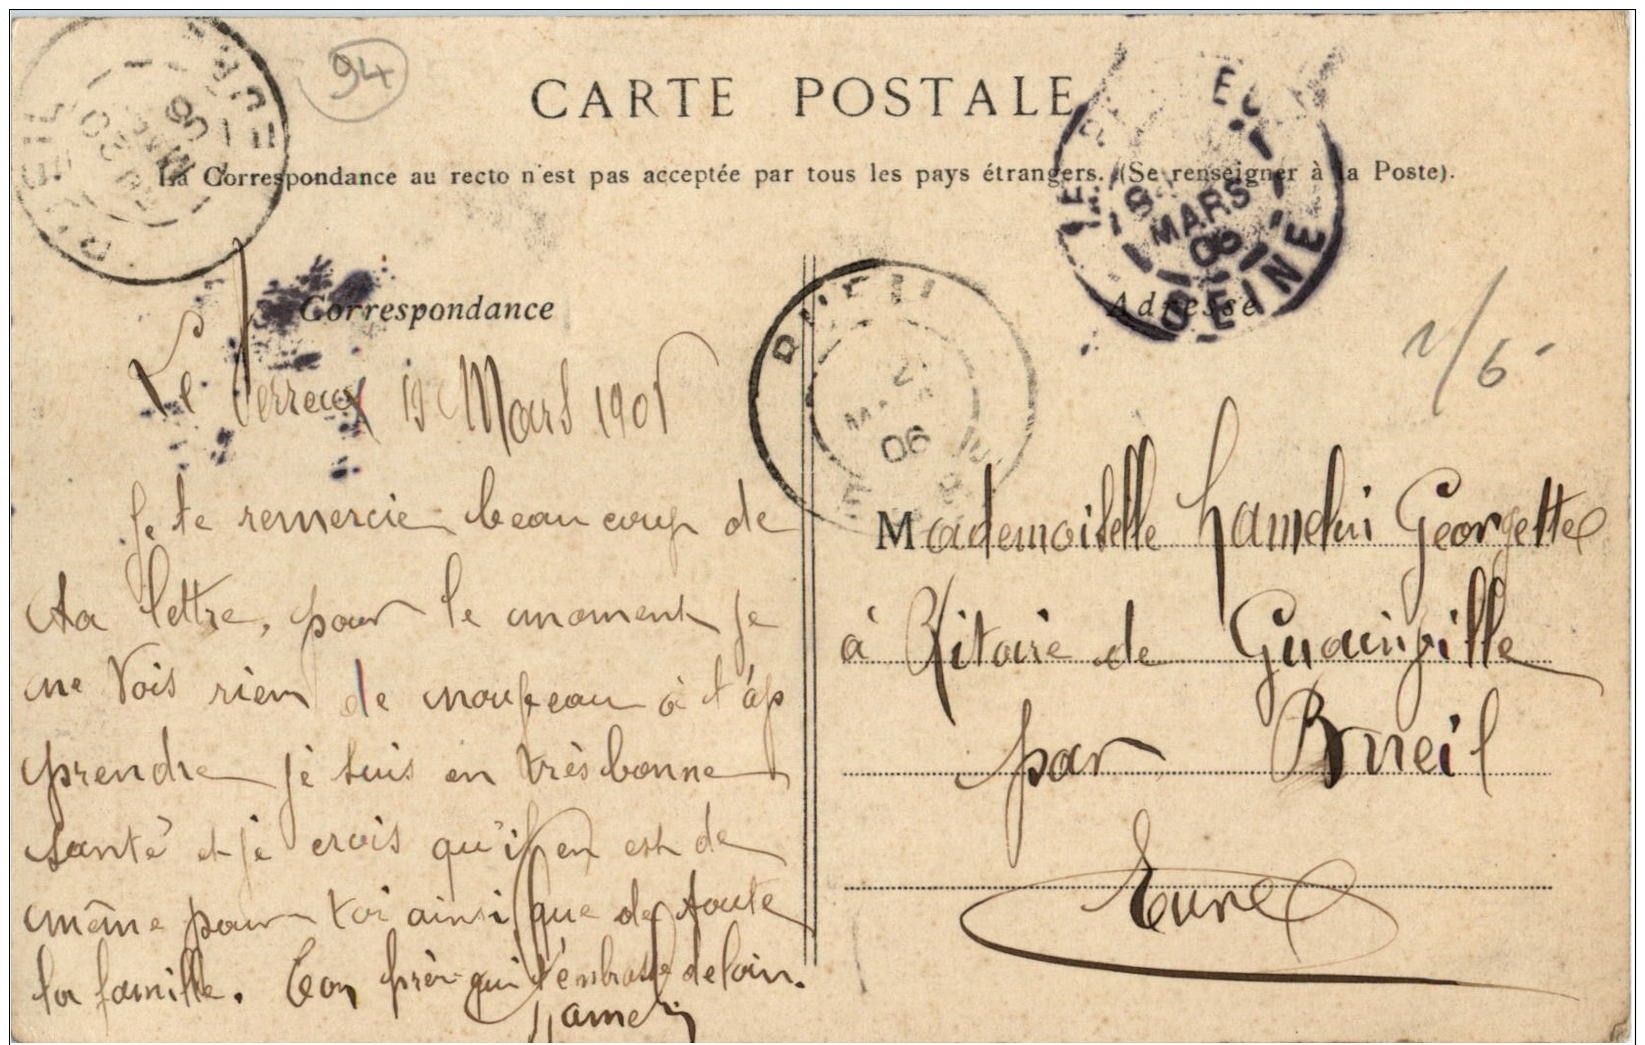 94
CARTE POSTALE
La Correspondance au recto n'est pas acceptée par tous les pays étrangers. (Se renseigner à la Poste).
8
MARS
06
SEINE
Correspondance
Adresse
BUEIL
06
Le Perreux 19 Mars 1906
Je te remercie beaucoup de
ta lettre, pour le moment je
ne vois rien de nouveau à t'ap
prendre je suis en très bonne
santé et je crois qu'il en est de
même pour toi ainsi que de toute
la famille. Ton frèr qui t'embrasse de loin.
Hamelin
Mademoiselle Hamelin Georgette
à Ritoire de Guainville
par Bueil
Eure